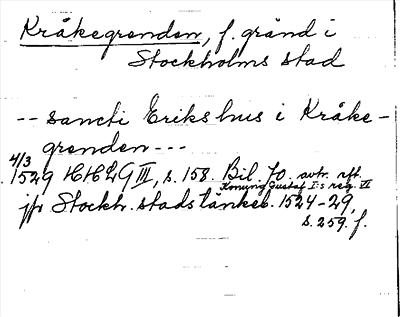 Kråkegrenden, f. gränd i
Stockholms stad
-- Sancti Eriks hus i Kråke-
grenden ---
4/3
1529 HHLG III, s. 158. Bil. fo. avtr. eft.
Konung Gustaf I:s reg. VI
jfr Stockh. stads tänkeb. 1524-29,
s. 259. f.